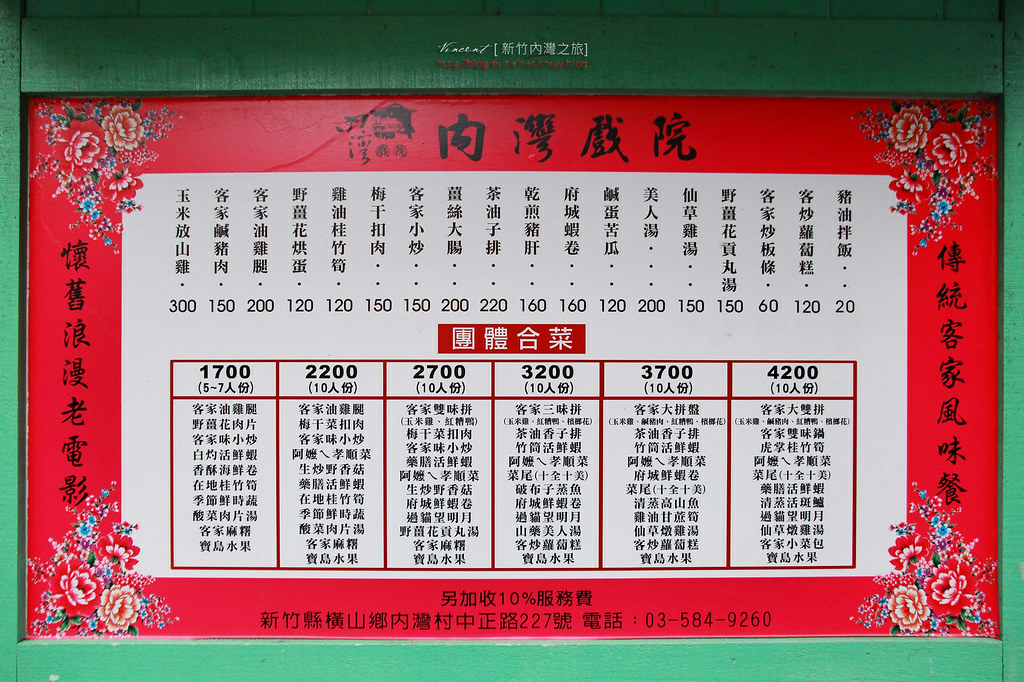 Vincent [ 新竹內灣之旅]
內灣戲院
傳統客家風味餐
豬油拌飯・20
客炒蘿蔔糕・120
客家炒板條・60
野薑花貢丸湯 150
仙草雞湯・・150
美人湯・・・200
鹹蛋苦瓜・・120
府城蝦卷・・160
乾煎豬肝・・160
茶油子排・・220
薑絲大腸・・200
客家小炒・・150
梅干扣肉・・150
雞油桂竹筍・120
野薑花烘蛋・120
客家油雞腿・200
客家鹹豬肉・150
玉米放山雞・300
懷舊浪漫老電影
團體合菜
1700
(5~7人份)
客家油雞腿
野薑花肉片
客家味小炒
白灼活鮮蝦
香酥海鮮卷
在地桂竹筍
季節鮮時蔬
酸菜肉片湯
客家麻糬
寶島水果
2200
(10人份)
客家油雞腿
梅干菜扣肉
客家味小炒
阿嬤ㄟ孝順菜
生炒野香菇
藥膳活鮮蝦
在地桂竹筍
季節鮮時蔬
酸菜肉片湯
客家麻糬
寶島水果
2700
(10人份)
客家雙味拼
(玉米雞、紅糟鴨)
梅干菜扣肉
客家味小炒
藥膳活鮮蝦
阿嬤ㄟ孝順菜
生炒野香菇
府城鮮蝦卷
過貓望明月
野薑花貢丸湯
客家麻糬
寶島水果
3200
(10人份)
客家三味拼
(玉米雞、紅糟鴨、檳榔花)
茶油香子排
竹筒活鮮蝦
阿嬤ㄟ孝順菜
菜尾(十全十美)
破布子蒸魚
府城鮮蝦卷
過貓望明月
山藥美人湯
客炒蘿蔔糕
寶島水果
3700
(10人份)
客家大拼盤
(玉米雞、鹹豬肉、紅糟鴨、檳榔花)
茶油香子排
竹筒活鮮蝦
阿嬤ㄟ孝順菜
府城鮮蝦卷
菜尾(十全十美)
清蒸高山魚
雞油甘蔗筍
仙草燉雞湯
客炒蘿蔔糕
寶島水果
4200
(10人份)
客家大雙拼
(玉米雞、鹹豬肉、紅糟鴨、檳榔花)
客家雙味鍋
虎掌桂竹筍
阿嬤ㄟ孝順菜
菜尾(十全十美)
藥膳活鮮蝦
清蒸活斑鱸
過貓望明月
仙草燉雞湯
客家小菜包
寶島水果
另加收10%服務費
新竹縣橫山鄉內灣村中正路227號 電話：03-584-9260